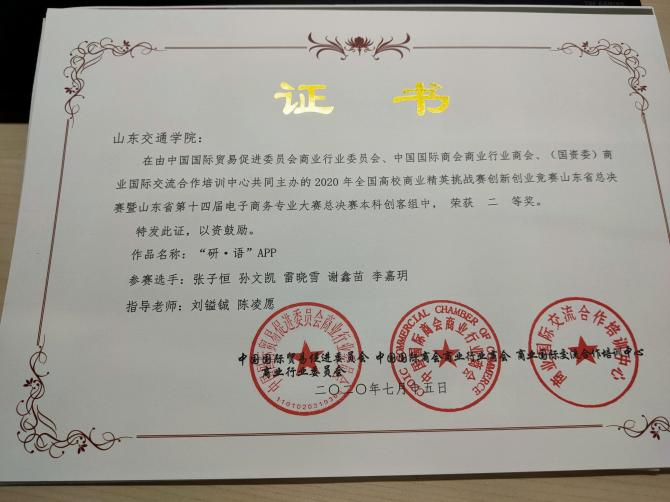 证 书
山东交通学院：
在由中国国际贸易促进委员会商业行业委员会、中国国际商会商业行业商会、（国资委）商
业国际交流合作培训中心共同主办的 2020 年全国高校商业精英挑战赛创新创业竞赛山东省总决
赛暨山东省第十四届电子商务专业大赛总决赛本科创客组中， 荣获 二 等奖。
特发此证，以资鼓励。
作品名称：“研·语”APP
参赛选手：张子恒 孙文凯 雷晓雪 谢鑫苗 李嘉玥
指导老师：刘镒铖 陈凌愿
中国国际贸易促进委员会 中国国际商会商业行业商会 商业国际交流合作培训中心
商业行业委员会
二〇二〇年七月 五日
中国国际贸易促进委员会商业行业委员会
CHAMBER OF COMMERCE
中国国际商会商业行业商会
商业国际交流合作培训中心